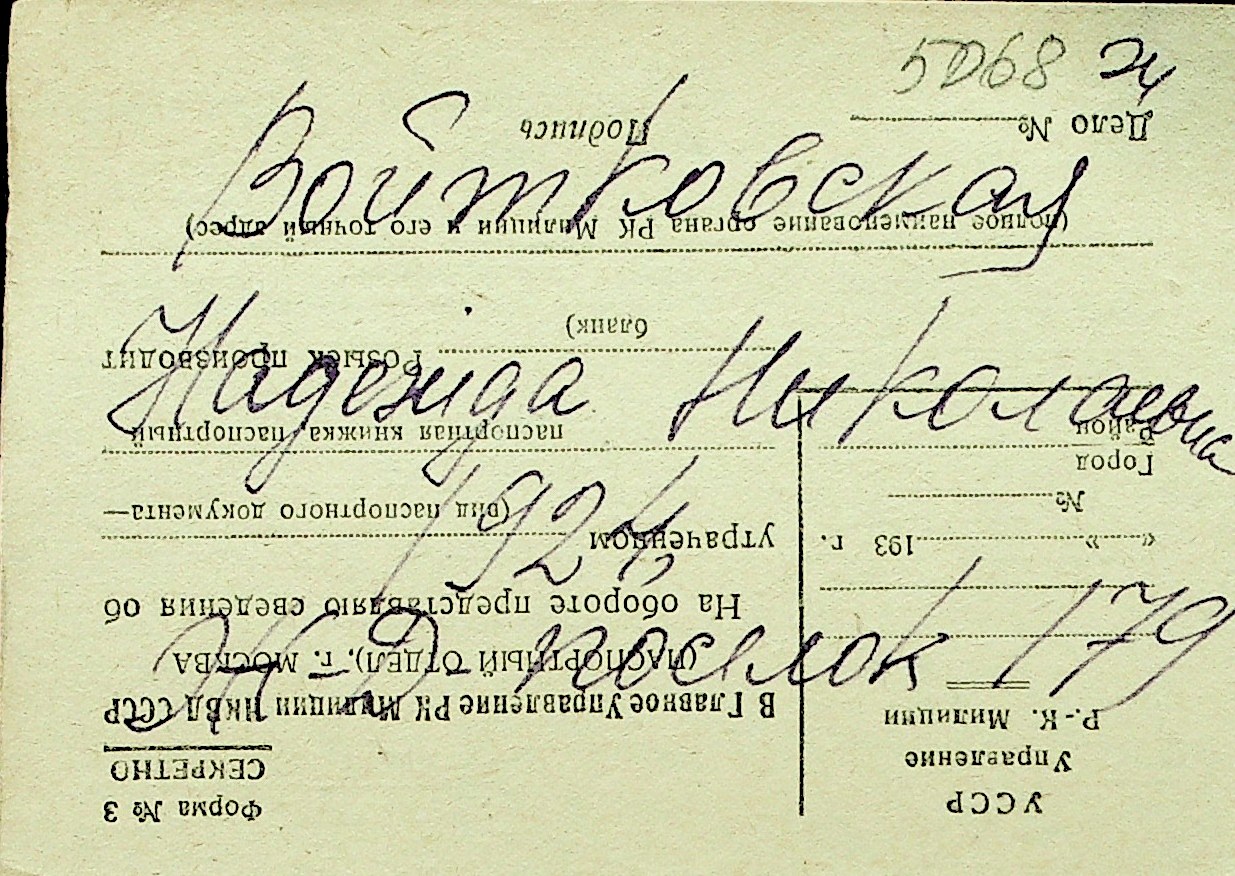 5068 эч
Войтковская
Надежда Николаевна
1924
Ж-Д поселок 179
УССР
Управление
Р.-К. Милиции
"........" 193 г.
№
Город
Район
Дело №
Форма № 3
СЕКРЕТНО
В Главное Управление РК Милиции НКВД СССР
(ПАСПОРТНЫЙ ОТДЕЛ), г. МОСКВА
На обороте представляю сведения об
утраченном
(вид паспортного документа—
паспортная книжка, паспортный
бланк)
Розыск производит
(полное наименование органа РК Милиции и его точный адрес)
Подпись